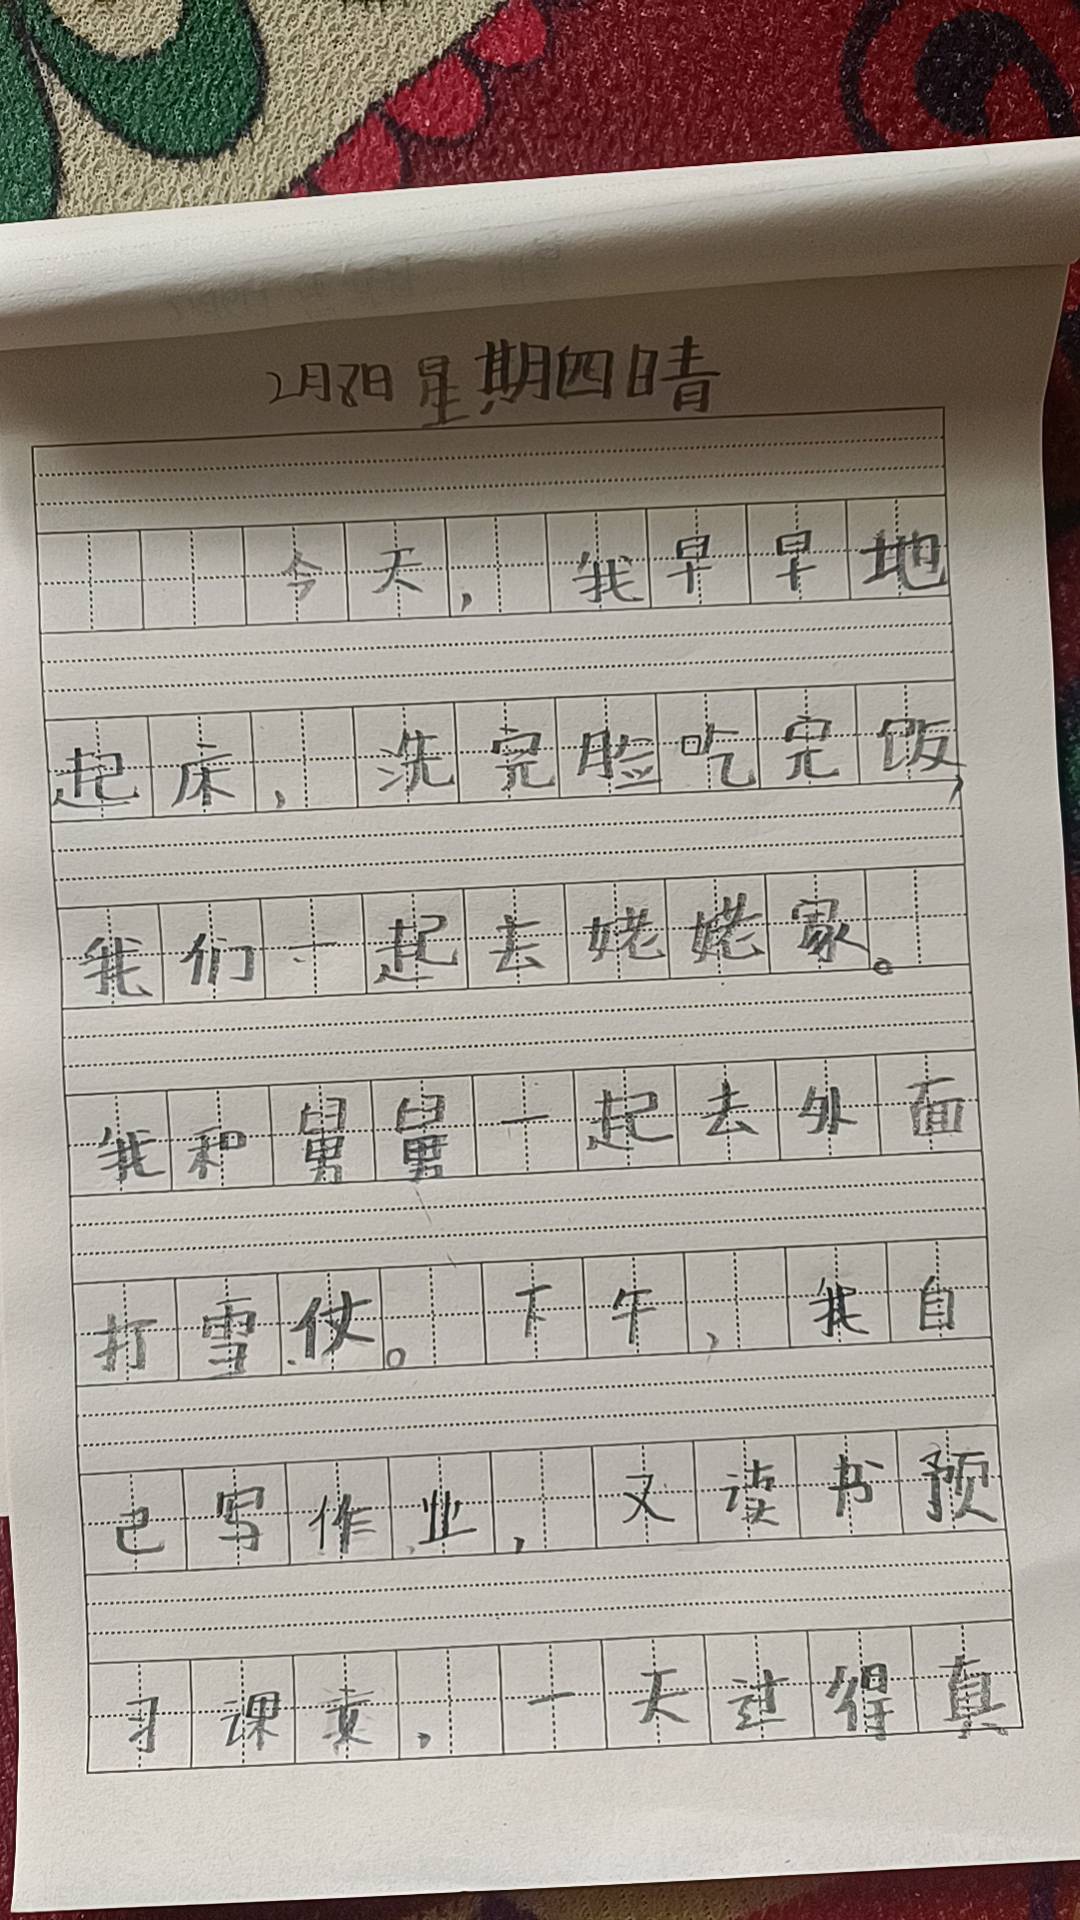 2月8日星期四晴
今天，我早早地
起床，洗完脸吃完饭，
我们一起去姥姥家。
我和舅舅一起去外面
打雪仗。下午，我自
己写作业，又读书预
习课，一天过得真